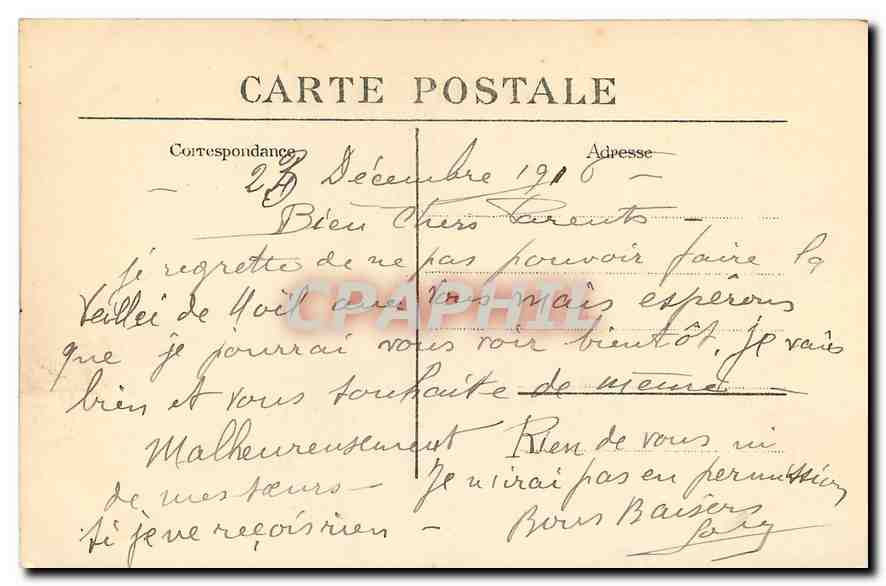 CARTE POSTALE
Correspondance Adresse
Décembre 191
Bien Chers Parents -
je regrette de ne pas pouvoir faire la
Veillei de Noël avec Vous mais espérons
que je pourrai vous voir bientôt, je vais
bien et vous souhaite de meme -
Malheureusement Rien de vous ni
de mes sœurs - Je n'irai pas en permission
si je ne reçois rien - Bons Baisers
CPAPHIL